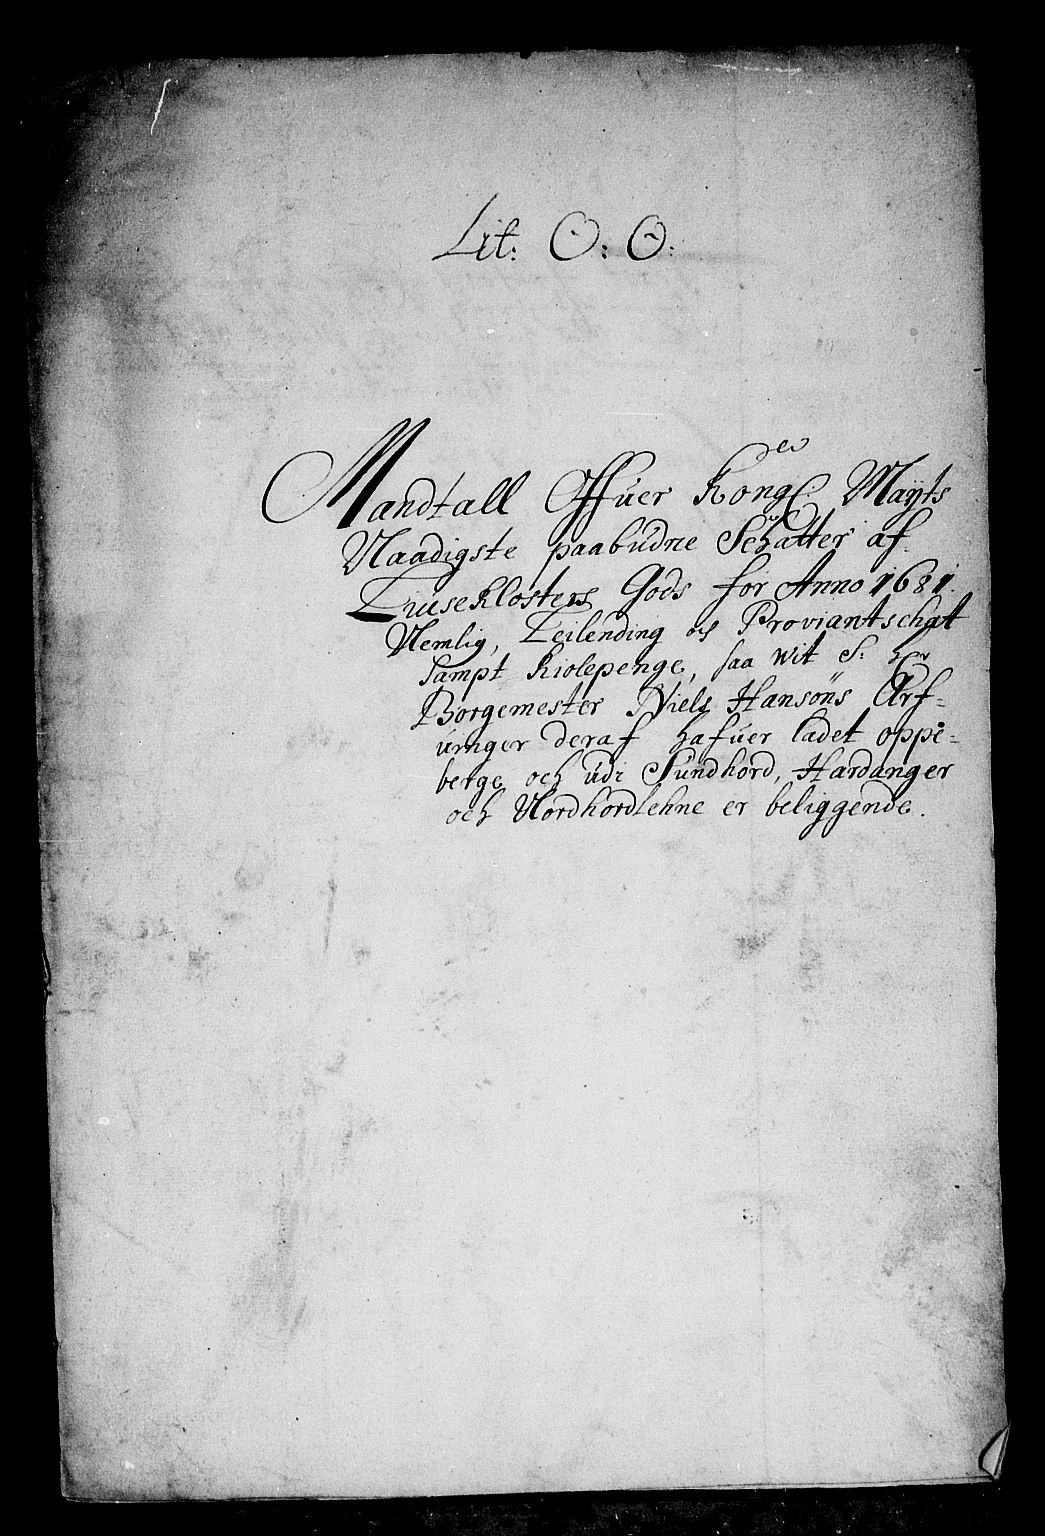 Lit: O: O:
Mandtall Offuer Kongl Mayts
Naadigste paabudne Schatter af
Liuseklosters Gods for Anno 1681.
Nemlig, Leilending och Proviantschat
Sampt Kiolepenge, saa wit S: her
Borgemester Niels Hansøns Arf-
uinger deraf hafuer ladet oppe-
berge och udi Sundhord, Hardanger
och Nordhordlehne er beliggende.